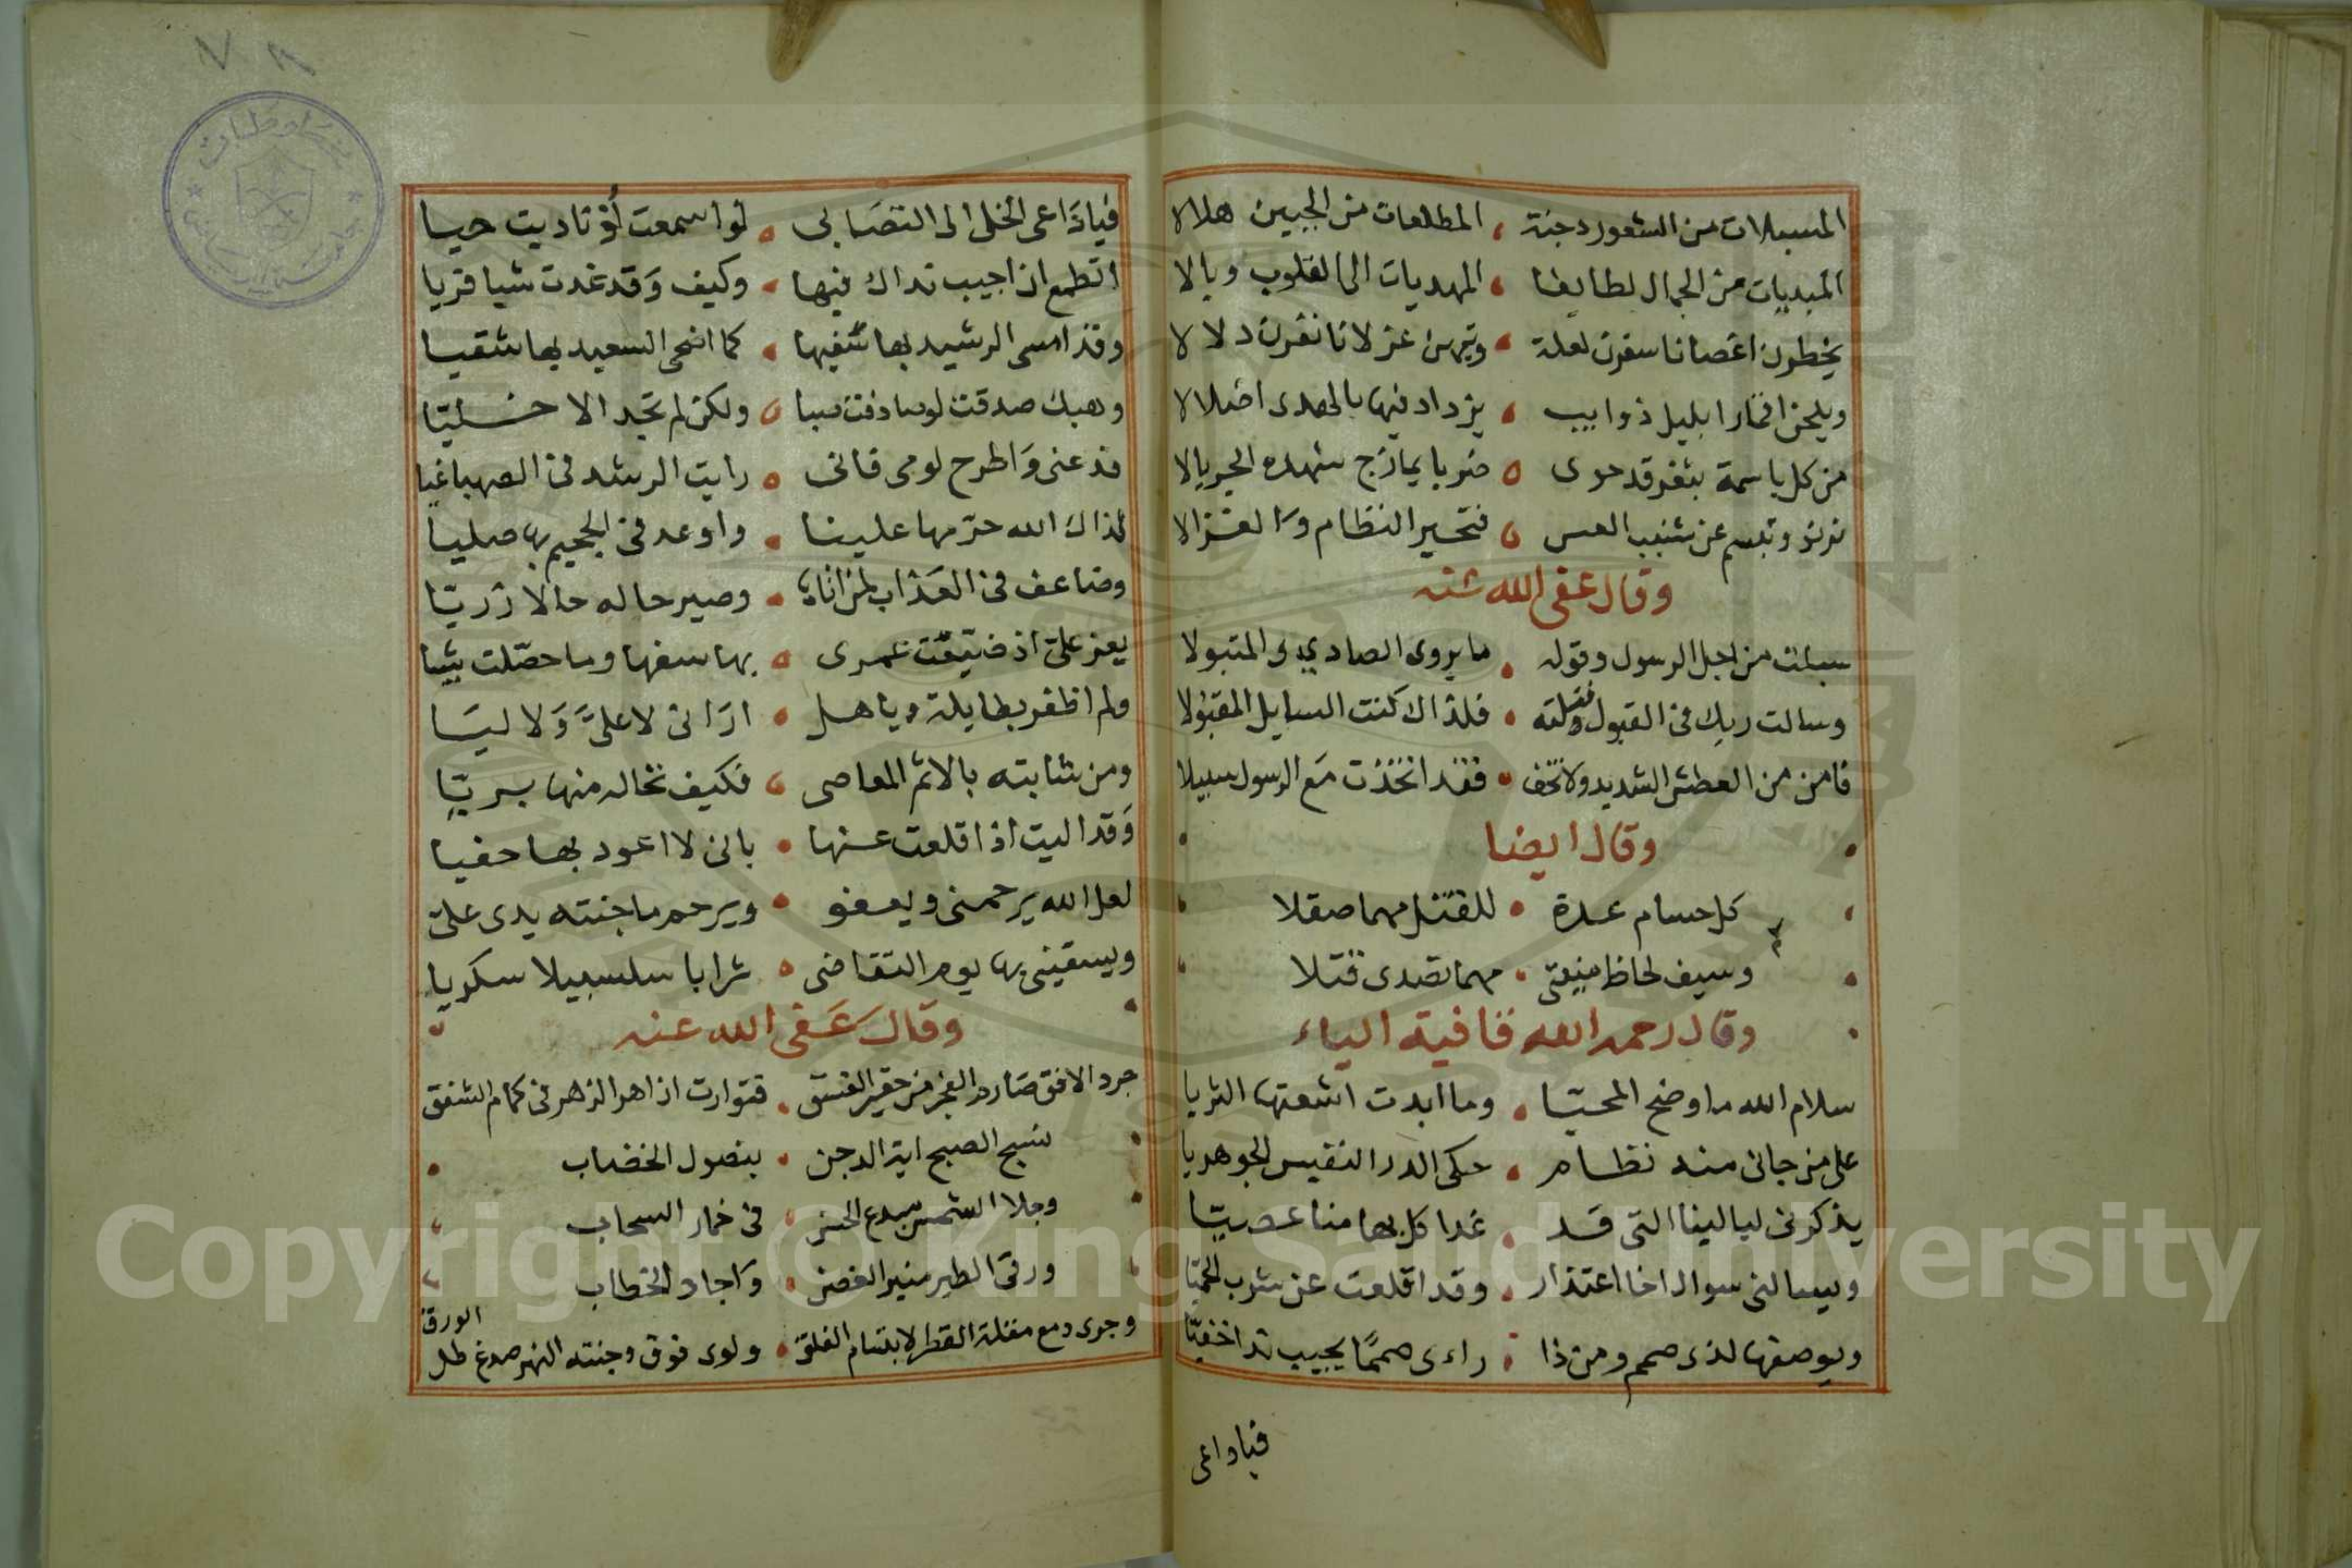 المسبلات من الشعور دجنة ، المطلعات من الجبين هلالا
المبديات من الجمال لطايفا ، المهديات الى القلوب وبالا
يخطرن اغصانا سفرن لعلة ، وتيهن غزلانا نفرن دلالا
ويلحن اقمارا بليل ذوايب ، يزداد فيها بالهدى اضلالا
من كل باسمة بثغر قد حوى ، ضربا يمازج شهده الجريالا
ترنو وتبسم عن شنيب العس ، فتحير النظام والغزالا
وقال عفى الله عنه
سبلت من اجل الرسول وقوله ، ما يروى الصادى المتبولا
وسالت ربك فى القبول ونلته ، فلذاك كنت السايل المقبولا
فامن من العطش الشديد ولا تخف ، فقد اتخذت مع الرسول سبيلا
وقال ايضا
كل حسام عدة ، للقتل مهما صقلا
وسيف لحاظ منيتى ، مهما تصدى قتلا
وقال رحمه الله قافية الياء
سلام الله ما وضح المحيا ، وما ابدت اشعتها الثريا
على من جانى منه نظام ، حكى الدر النفيس الجوهريا
يذكرنى ليالينا التى قد ، غدا كل بها منا عصيا
ويسالنى سوال اخا اعتذار ، وقد اقلعت عن شرب الحميا
ويوصفها لذى صمم ومن ذا ، راءى صمما يجيب ندا خفيا
فياداعى
٧٨
فيا داعى الخلى الى التصابى ، لو اسمعت أو ناديت حيا
اتطمع ان اجيب نداك فيها ، وكيف وقد غدت شيا فريا
وقد امسى الرشيد بها سفيها ، كما اضحى السعيد بها شقيا
وهبك صدقت لو صادفت صبا ، ولكن لم تجد الا خليا
فدعنى واطرح لومى فانى ، رايت الرشد فى الصهبا غيا
لذاك الله حرمها علينا ، واوعد فى الجحيم بها صليا
وضاعف فى العذاب لمن اتاها ، وصير حاله حالا زريا
يعز على اذ ضيعت عمرى ، بها سفها وما حصلت شيا
ولم اظفر بطايلة وياهل ، ارانى لا على ولا ليا
ومن شابته بالاثم المعاصى ، فكيف تخاله منها بريا
وقد اليت اذ اقلعت عنها ، بانى لا اعود بها حفيا
لعل الله يرحمنى ويعفو ، ويرحم ما جنته يدى على
ويسقينى بها يوم التقاضى ، شرابا سلسبيلا سكريا
وقال عفى الله عنه
جرد الافق صارم الفجر من الغسق ، فتوارت ازاهر الزهر فى كمام الشفق
نسخ الصبح اية الدجن ، بنصول الخضاب
وجلا الشمس مبدع الحسن ، فى خمار السحاب
ورقى الطير منبر الغصن ، واجاد الخطاب
وجرى دمع مقلة القطر لابتسام الفلق ، ولوى فوق وجنته النهر صدغ ظل
الورق